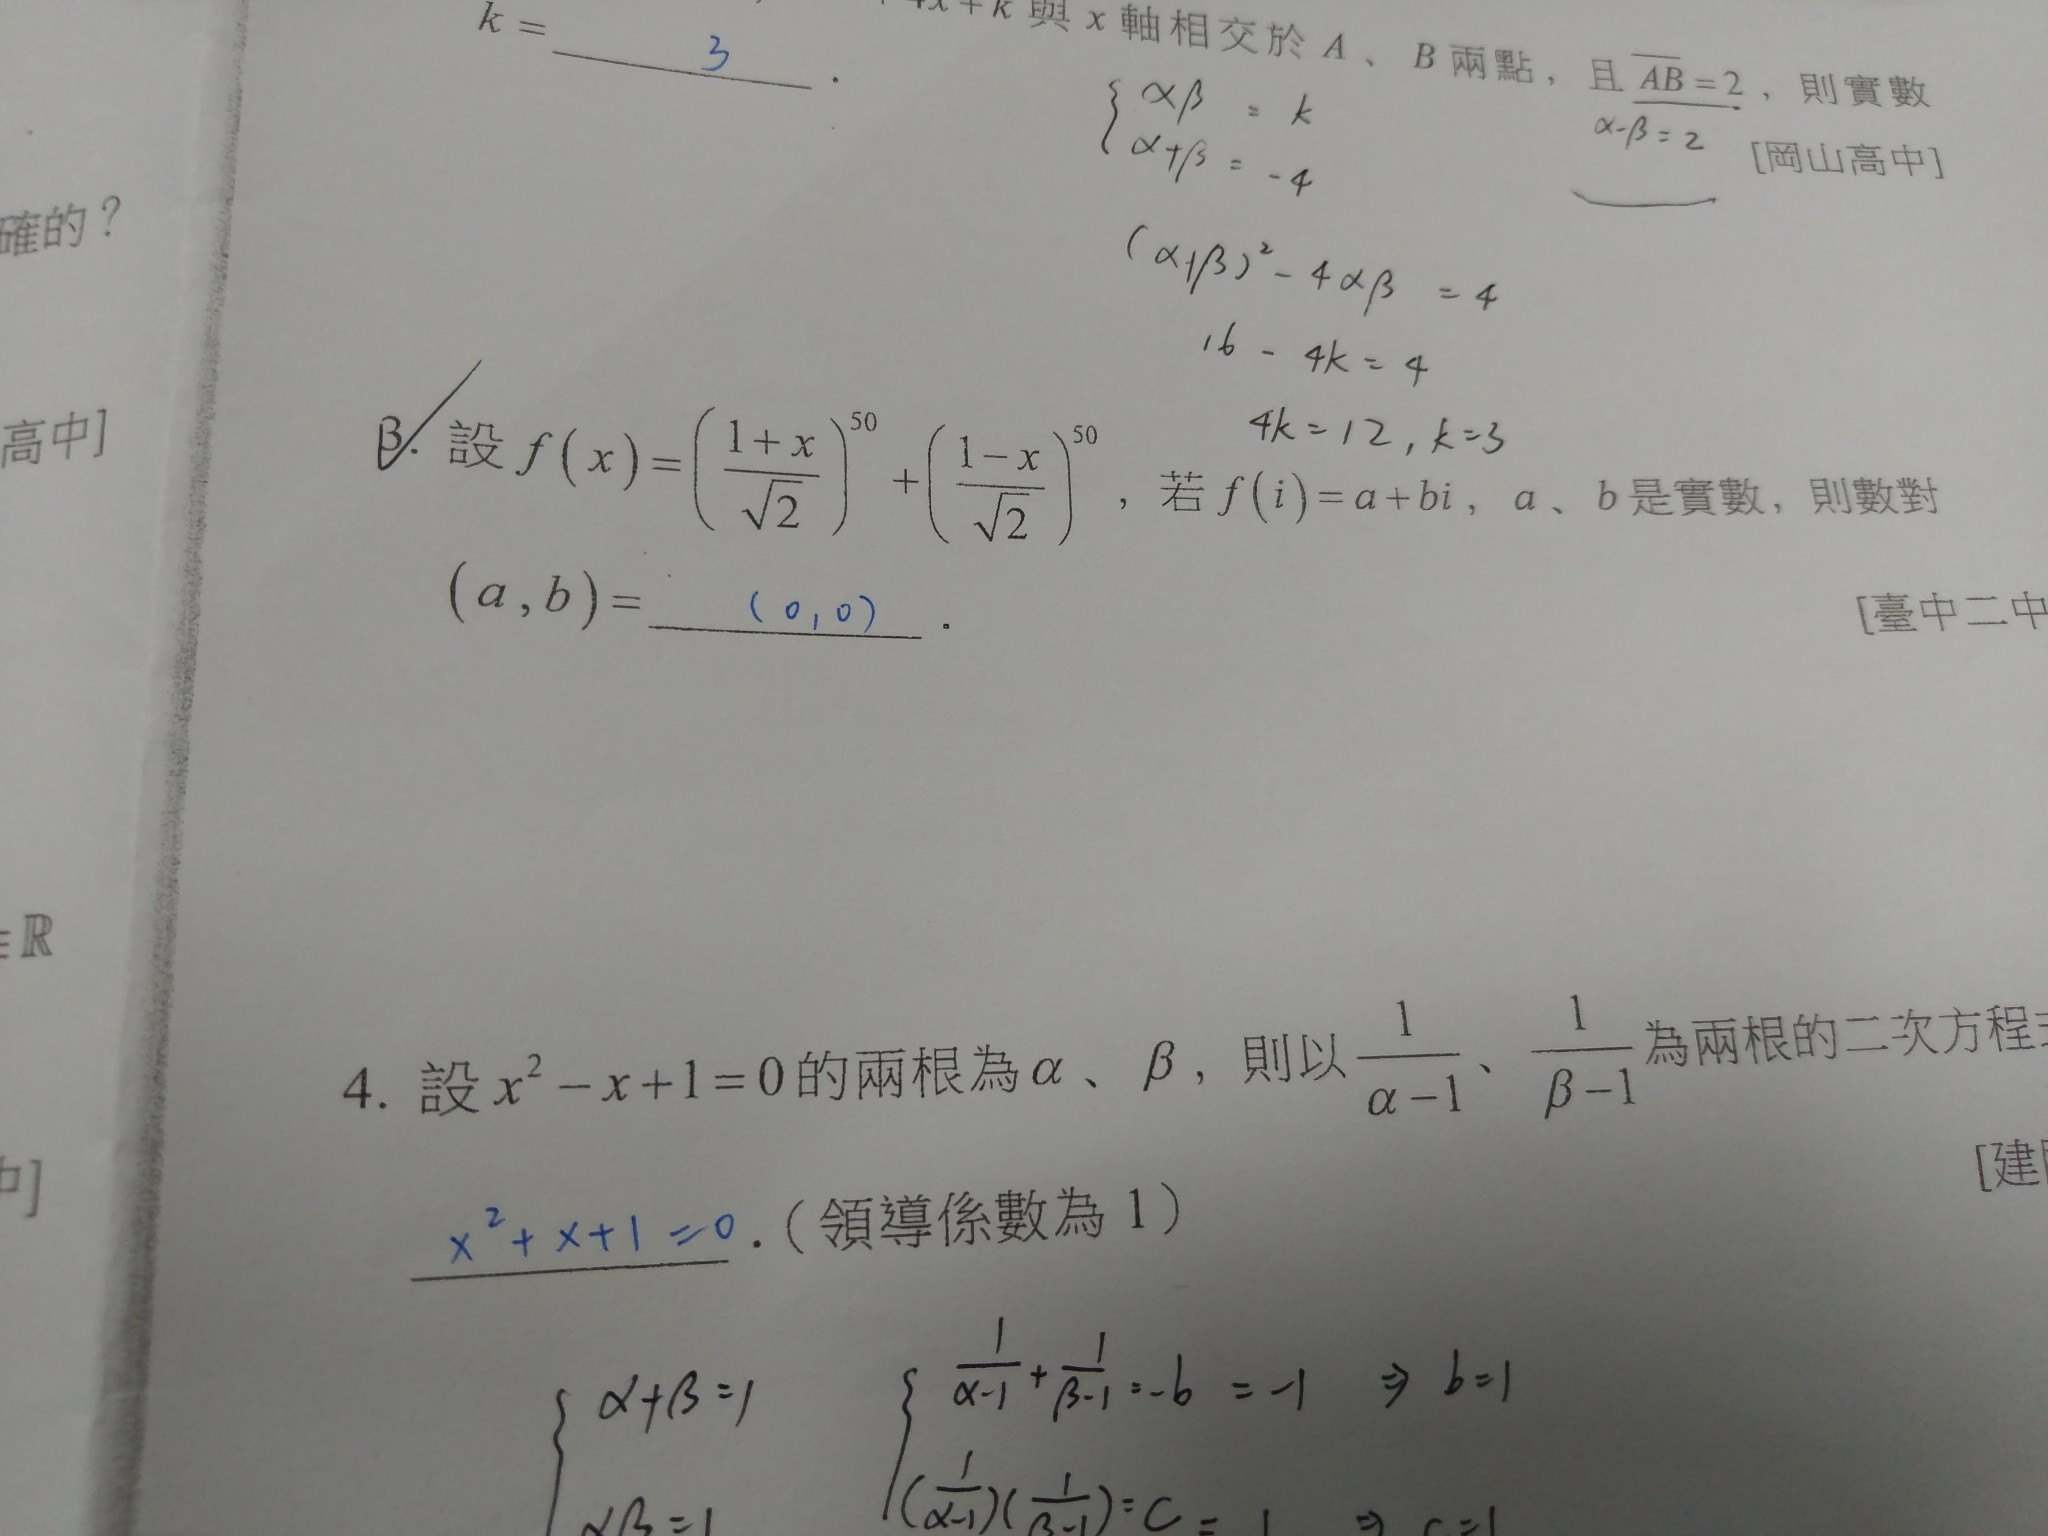 4x+k 與 x 軸相交於 A、B 兩點，且 AB=2，則實數
k= 3 .
α-β=2
[岡山高中]
{ αβ = k
α+β = -4
(α+β)² - 4αβ = 4
16 - 4k = 4
4k=12, k=3
確的？
高中]
∈ℝ
中]
3. 設 f(x)=((1+x)/√2)^50+((1-x)/√2)^50，若 f(i)=a+bi，a、b 是實數，則數對
(a,b)= (0,0) .
[臺中二中
4. 設 x²-x+1=0 的兩根為 α、β，則以 1/(α-1)、1/(β-1) 為兩根的二次方程式
[建
x²+x+1=0 .（領導係數為 1）
{ α+β=1
αβ=1
{ 1/(α-1)+1/(β-1)=-b = -1 ⇒ b=1
(1/(α-1))(1/(β-1))=c = 1 ⇒ c=1